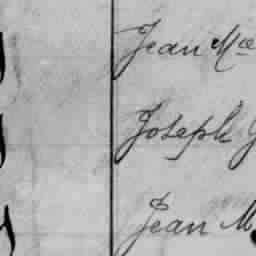 Jean Mce
Joseph J
Jean M